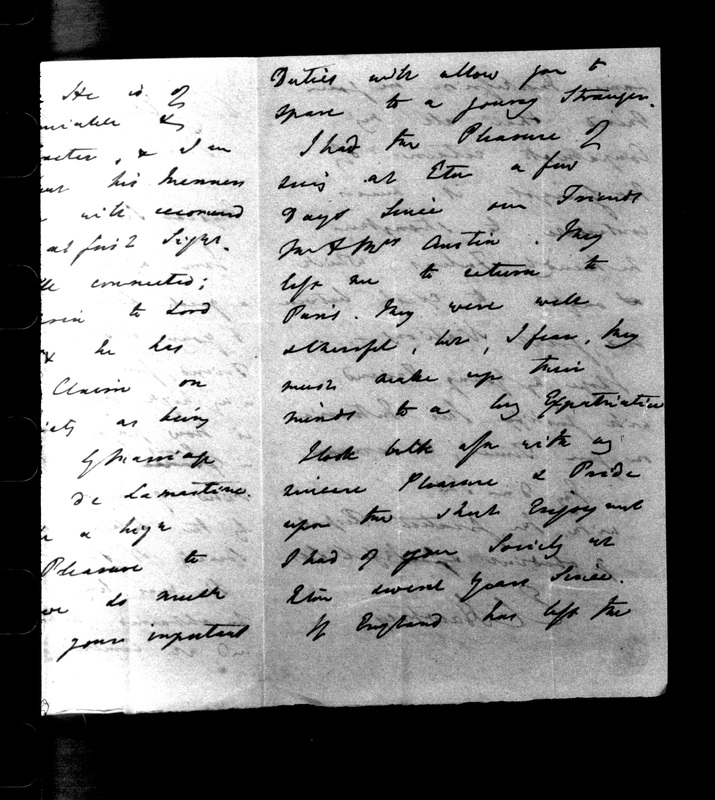 He is of
& 
, & I am
his Manners
will recommend
at first Sight.
connected;
to Lord
& he has
Claim on
as being
by Marriage
de Lamartine.
a high
Pleasure to
do much
your important
Duties will allow you to
spare to a young Stranger.
I had the Pleasure of
seeing at Eton a few
Days since our Friends
Mr & Mrs Austin. They
left me to return to
Paris. They were well
& cheerful, but, I fear, they
must make up their
minds to a long Expatriation
I look back often with
sincere Pleasure & Pride
upon the short Enjoyment
I had of your Society at
Eton several years since.
If England has left the